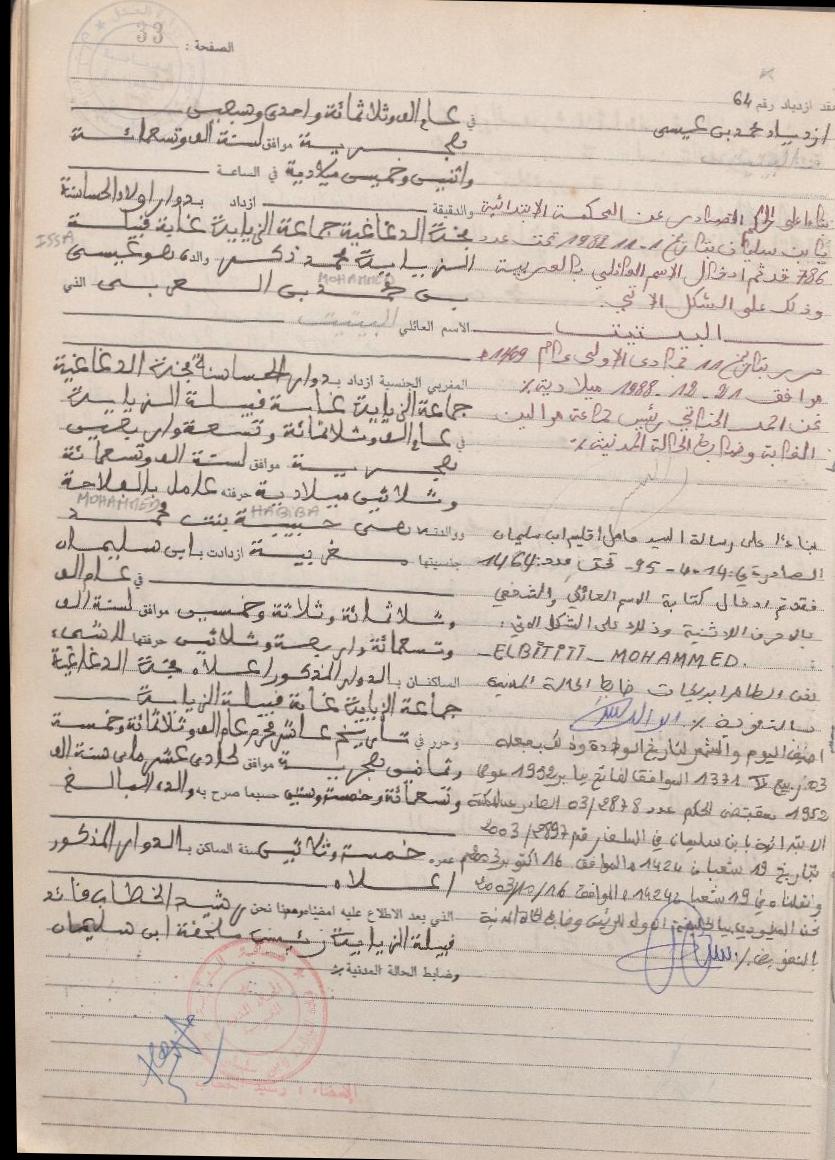 الصفحة : 33
عقد ازدياد رقم 64
ازدياد محمد بن عيسى
بناء على الحكم الصادر عن المحكمة الابتدائية
بابن سليمان بتاريخ 1-11-1988 تحت عدد
786 قد تم إدخال الاسم العائلي بالعربية
وذلك على الشكل الآتي:
البيتيت
حرر بتاريخ 11 جمادى الأولى عام 1409 ه
موافق 21-12-1988 ميلادية
نحن احمد رئيس جماعة موالين
الغابة وضابط الحالة المدنية
بناءا على رسالة السيد عامل اقليم ابن سليمان
الصادرة في: 14-4-95 تحت عدد: 1464
فقد تم ادخال كتابة الاسم العائلي والشخصي
بالاحرف اللاتينية وذلك على الشكل الآتي:
ELBITIT - MOHAMMED.
نحن الطاهر ابريكات ضابط الحالة المدنية
بالتفويض
اضيف اليوم والشهر لتاريخ الولادة وذلك بجعله
03 ربيع II 1371 الموافق لفاتح يناير 1952 عوض
1952 بمقتضى الحكم عدد 03/2878 الصادر عن المحكمة
الابتدائية بابن سليمان في الملف رقم 2003/2897
بتاريخ 19 شعبان 1424 ه الموافق 16 اكتوبر 2003م
في 19 شعبان 1424 ه الموافق 2003/10/16
نحن
بالتفويض
في عام الف وثلاثمائة واحدى وسبعين
هجرية موافق لسنة الف وتسعمائة
واثنين وخمسين ميلادية في الساعة
والدقيقة ازداد بدوار اولاد الحساسنة
فخذة الدغاغية جماعة الزيايدة غابة قبيلة
الزيايدة محمد ذكر والده هو عيسى
ISSA
MOHAMMED
بن محمد بن العربي الذي
الاسم العائلي البيتيت
المغربي الجنسية ازداد بدوار الحساسنة فخذة الدغاغية
جماعة الزيايدة غابة قبيلة الزيايدة
في عام الف وثلاثمائة وتسعة واربعين
هجرية موافق لسنة الف وتسعمائة
وثلاثين ميلادية حرفته عامل بالفلاحة
MOHAMMED HABIBA
ووالدته هي حبيبة بنت محمد
جنسيتها مغربية ازدادت بابن سليمان
في عام الف
وثلاثمائة وثلاثة وخمسين موافق لسنة الف
وتسعمائة واربعة وثلاثين حرفتها لا شيء
الساكنان بالدوار المذكور اعلاه فخذة الدغاغية
جماعة الزيايدة غابة قبيلة الزيايدة
وحرر في تاريخ عاشر محرم عام الف وثلاثمائة وخمسة
وثمانين هجرية موافق لحادي عشر ماي سنة الف
وتسعمائة وخمسة وستين حسبما صرح به والده البالغ
عمره خمسة وثلاثين سنة الساكن بالدوار المذكور
اعلاه
الذي بعد الاطلاع عليه امضينا معنا نحن رشيد الخطاب قائد
قبيلة الزيايدة رئيس ملحقة ابن سليمان
وضابط الحالة المدنية
الامضاء : رشيد الخطاب